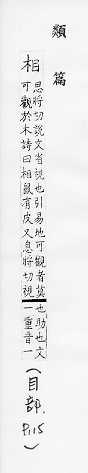 類篇
相
思將切說文省視也引易地可觀者莫
可觀於木詩曰相鼠有皮又息將切視
也助也文
一重音一
(目部.P.15)